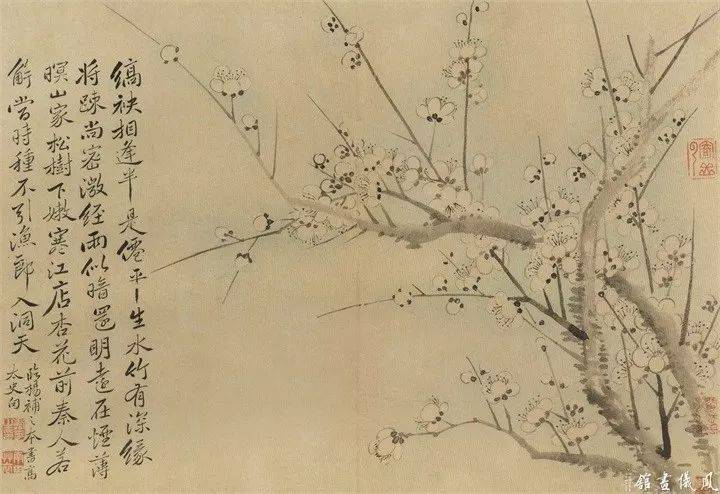 縞袂相逢半是僊平生水竹有深緣
将踈尚密微經雨似暗還明遠在煙薄
暝山家松樹下嫩寒江店杏花前秦人若
解當時種不引漁郎入洞天
臨楊補之本書高
太史句
鳳儀畫館